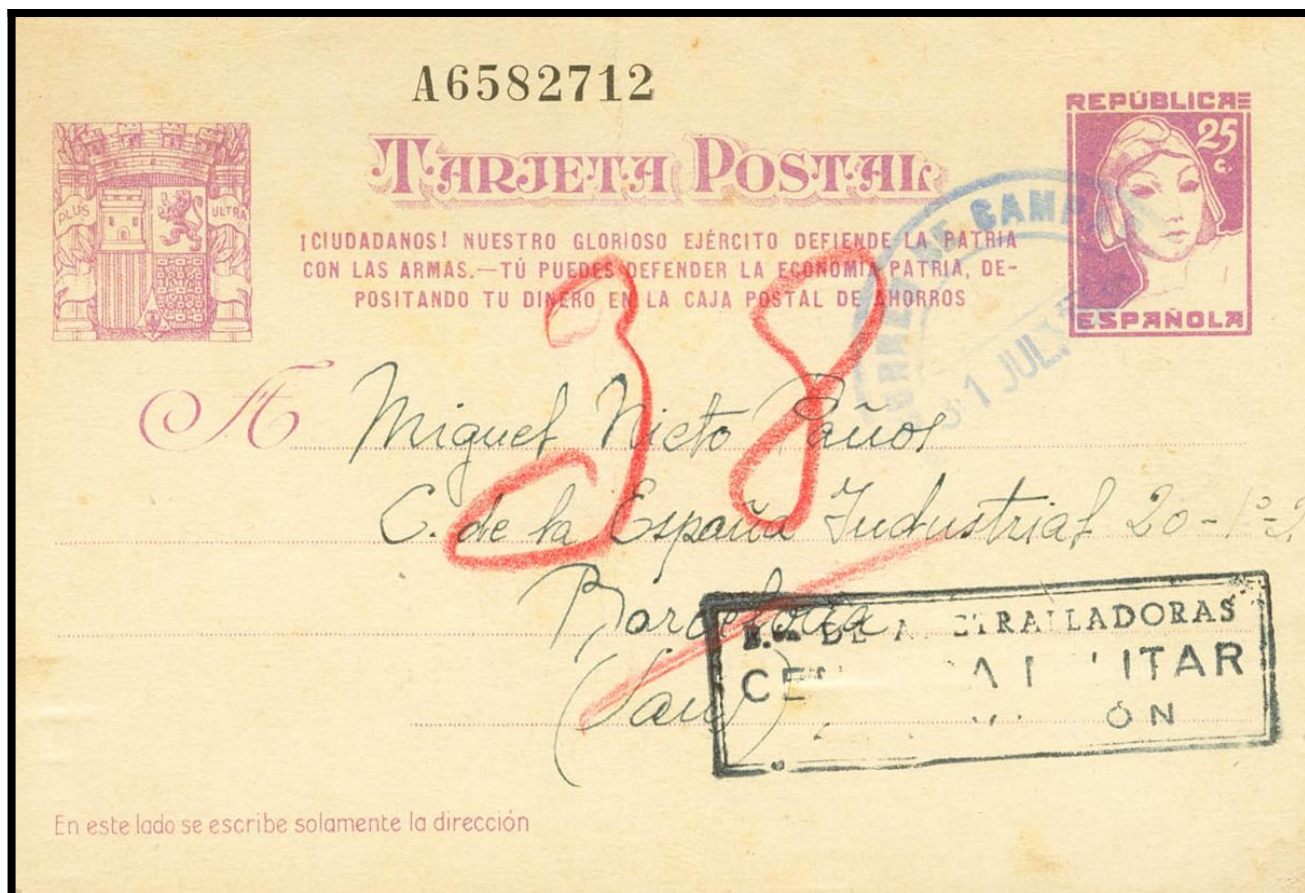 A6582712
TARJETA POSTAL
REPÚBLICA
25 c.
ESPAÑOLA
PLUS ULTRA
¡CIUDADANOS! NUESTRO GLORIOSO EJÉRCITO DEFIENDE LA PATRIA
CON LAS ARMAS.—TÚ PUEDES DEFENDER LA ECONOMÍA PATRIA, DE-
POSITANDO TU DINERO EN LA CAJA POSTAL DE AHORROS
DE
31 JUL.
38
A Miguel Nieto Paños
C. de la España Industrial 20-1º-
Barcelona
DE
En este lado se escribe solamente la dirección